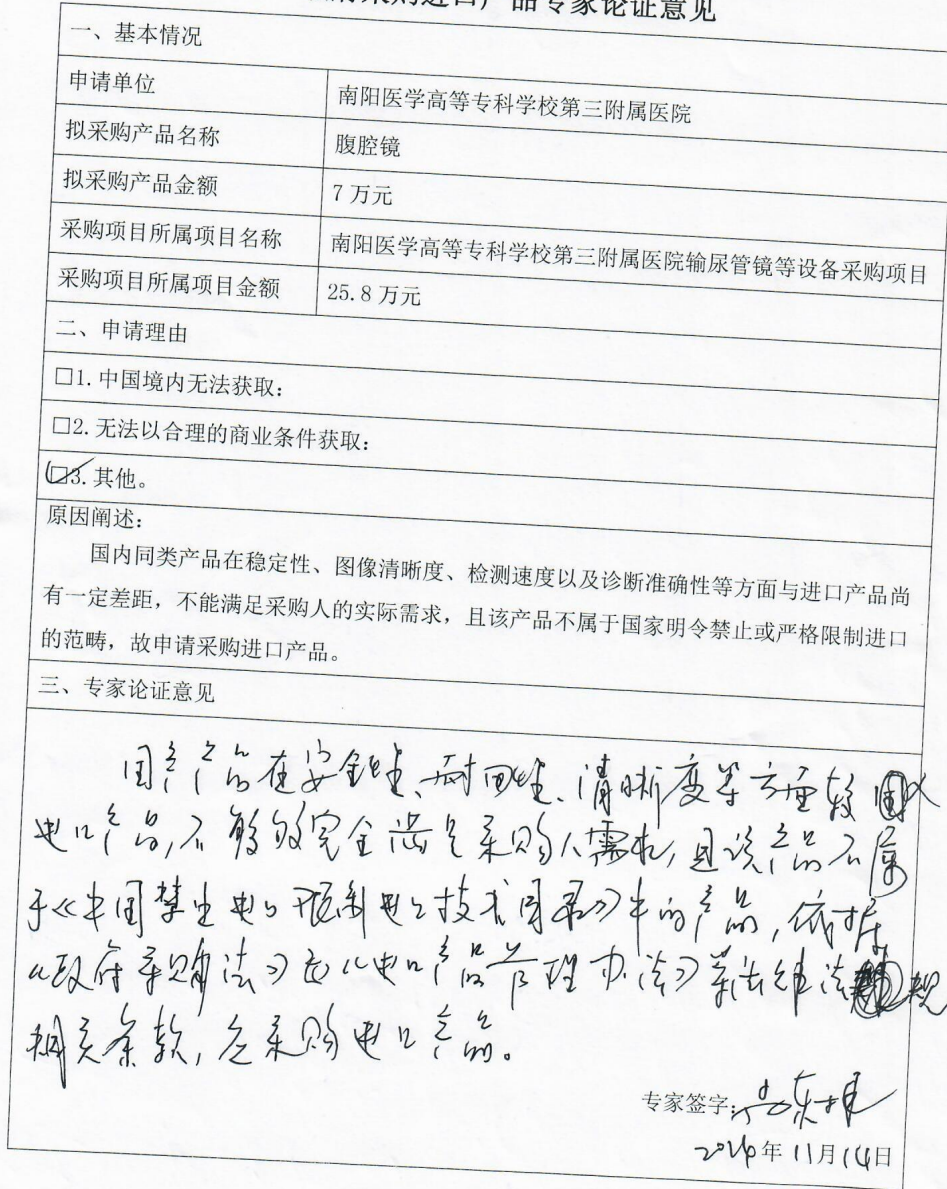 采购进口产品专家论证意见
一、基本情况
申请单位 南阳医学高等专科学校第三附属医院
拟采购产品名称 腹腔镜
拟采购产品金额 7万元
采购项目所属项目名称 南阳医学高等专科学校第三附属医院输尿管镜等设备采购项目
采购项目所属项目金额 25.8万元
二、申请理由
□1.中国境内无法获取:
□2.无法以合理的商业条件获取:
☑3.其他。
原因阐述:
国内同类产品在稳定性、图像清晰度、检测速度以及诊断准确性等方面与进口产品尚
有一定差距，不能满足采购人的实际需求，且该产品不属于国家明令禁止或严格限制进口
的范畴，故申请采购进口产品。
三、专家论证意见
国产产品在安全性、耐用性、清晰度等方面较
进口产品,不能够完全满足采购人需求,且该产品不属
于《中国禁止进口限制进口技术目录》中的产品,依据
《政府采购法》《进口产品管理办法》等法律法规
相关条款,采购进口产品。
专家签字:
2024年11月14日